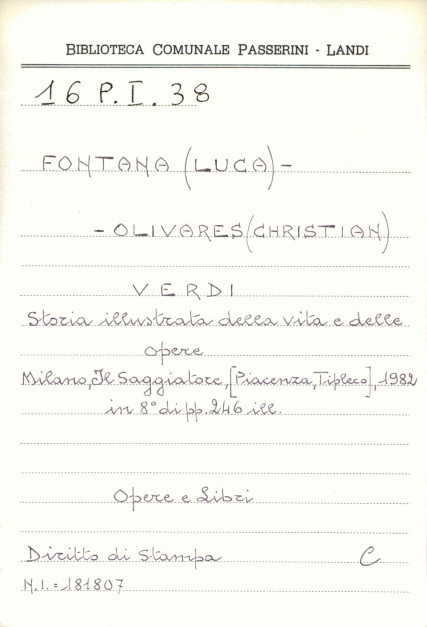 BIBLIOTECA COMUNALE PASSERINI - LANDI
16 P. I. 38
FONTANA (LUCA) -
- OLIVARES (CHRISTIAN)
VERDI
Storia illustrata della vita e delle
opere
Milano, Il Saggiatore, [Piacenza, Tipleco], 1982
in 8° di pp. 246 ill.
Opere e Libri
Diritto di Stampa C
N.I. = 181807